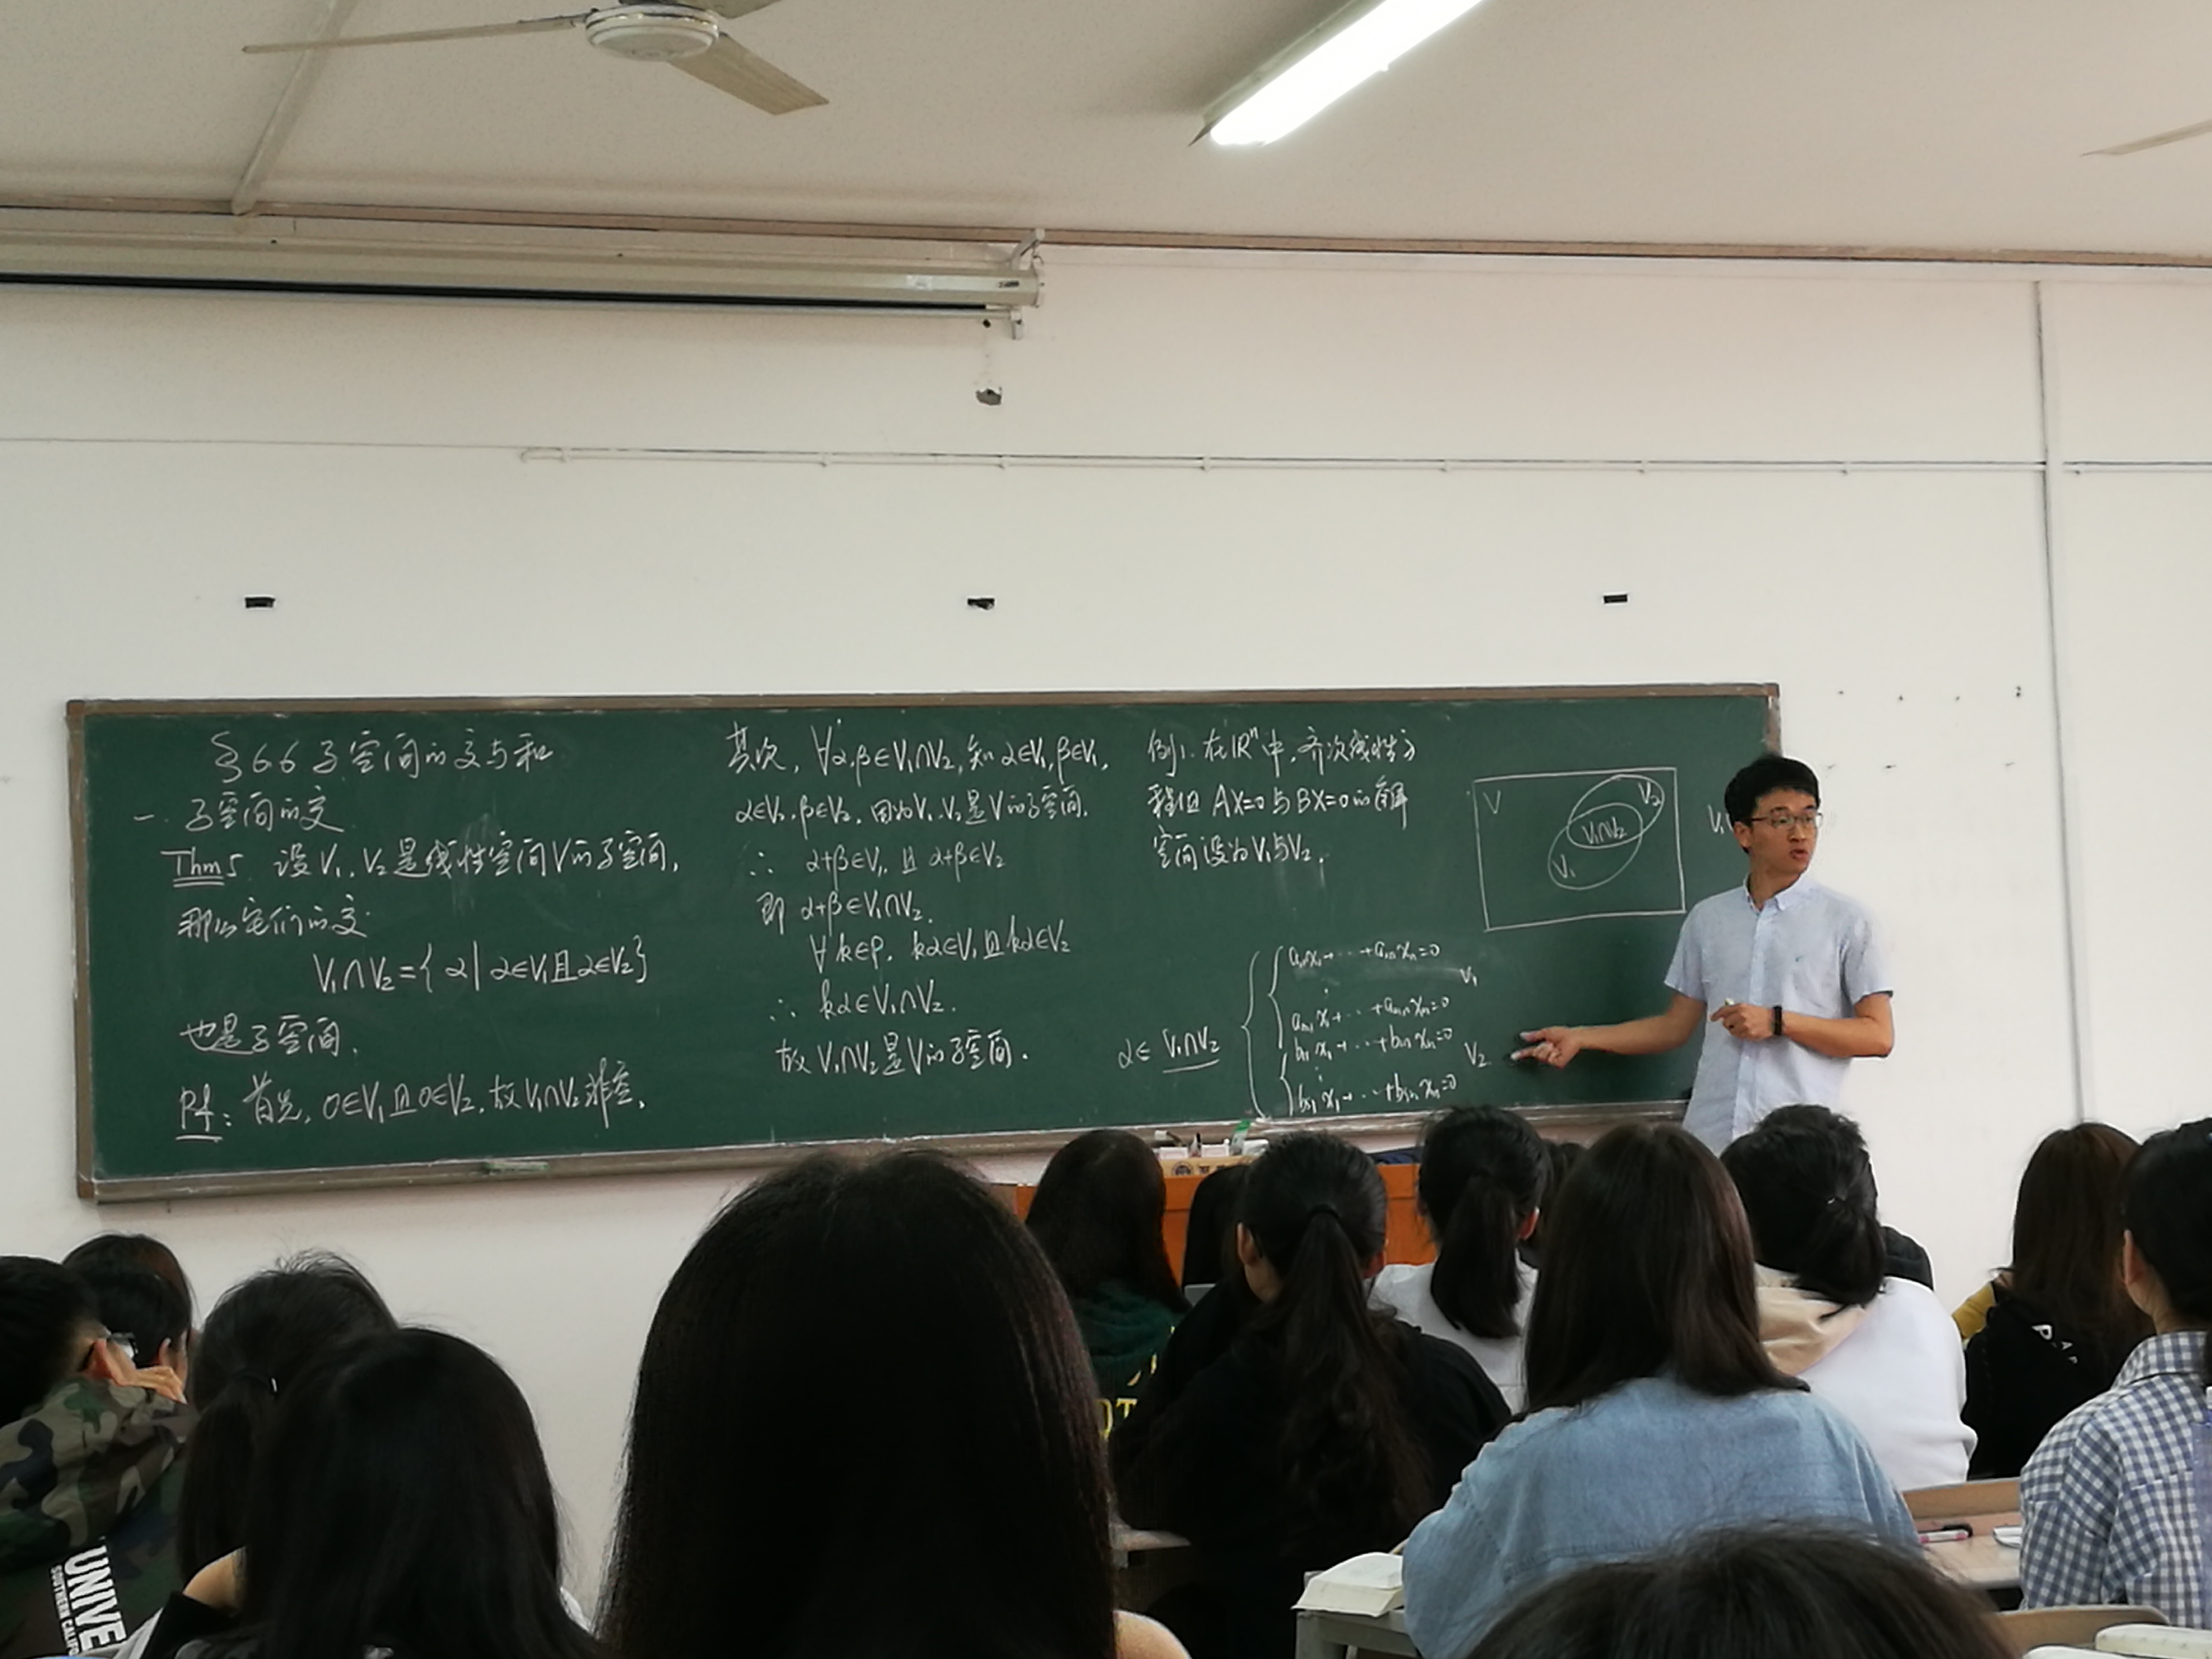 §6.6 子空间的交与和
一. 子空间的交
Thm5. 设V₁, V₂是线性空间V的子空间,
那么它们的交
V₁∩V₂={α|α∈V₁且α∈V₂}
也是子空间.
Pf: 首先, 0∈V₁且0∈V₂, 故V₁∩V₂非空,
其次, ∀α,β∈V₁∩V₂, 知α∈V₁, β∈V₁,
α∈V₂, β∈V₂, 因为V₁, V₂是V的子空间,
∴ α+β∈V₁, 且α+β∈V₂
即 α+β∈V₁∩V₂.
∀k∈P, kα∈V₁且kα∈V₂
∴ kα∈V₁∩V₂.
故V₁∩V₂是V的子空间.
例1. 在ℝⁿ中, 齐次线性方
程组 AX=0与BX=0的解
空间设为V₁与V₂.
V
V₂
V₁∩V₂
V₁
α∈ V₁∩V₂
a₁₁x₁+⋯+a₁ₙxₙ=0
⋮
aₘ₁x₁+⋯+aₘₙxₙ=0
V₁
b₁₁x₁+⋯+b₁ₙxₙ=0
⋮
bₛ₁x₁+⋯+bₛₙxₙ=0
V₂
UNIVE
SOUTHERN CALIFO